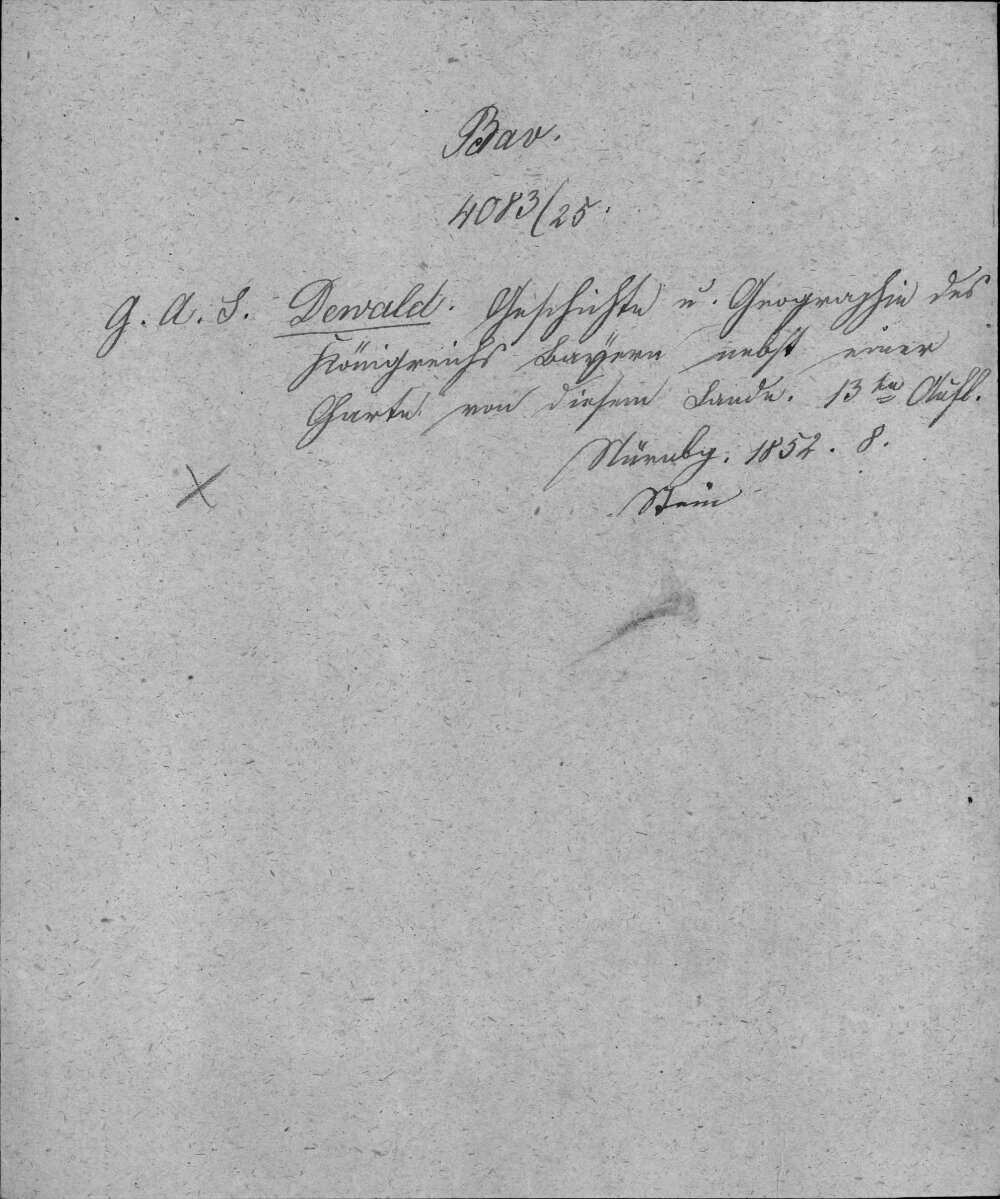 Bav.
4083/25.
G. A. S. Dewald. Geschichte u. Geographie des
Königreichs Bayern nebst einer
Charte von diesem Lande. 13te Aufl.
Nürnbg. 1852. 8.
Stein
X